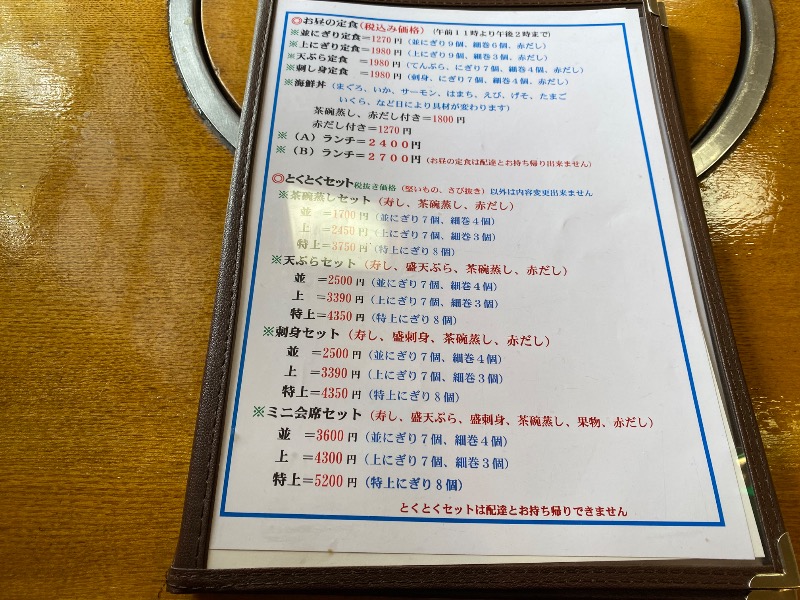 ◎お昼の定食(税込み価格)(午前11時より午後2時まで)
※並にぎり定食=1270円(並にぎり9個、細巻6個、赤だし)
※上にぎり定食=1980円(上にぎり9個、細巻3個、赤だし)
※天ぷら定食 =1980円(てんぷら、にぎり7個、細巻4個、赤だし)
※刺し身定食 =1980円(刺身、にぎり7個、細巻4個、赤だし)
※海鮮丼(まぐろ、いか、サーモン、はまち、えび、げそ、たまご
いくら、など日により具材が変わります)
茶碗蒸し、赤だし付き=1800円
赤だし付き=1270円
※(A)ランチ=2400円
※(B)ランチ=2700円(お昼の定食は配達とお持ち帰り出来ません)
◎とくとくセット税抜き価格(堅いもの、さび抜き)以外は内容変更出来ません
※茶碗蒸しセット(寿し、茶碗蒸し、赤だし)
並 =1700円(並にぎり7個、細巻4個)
上 =2450円(上にぎり7個、細巻3個)
特上=3750円(特上にぎり8個)
※天ぷらセット(寿し、盛天ぷら、茶碗蒸し、赤だし)
並 =2500円(並にぎり7個、細巻4個)
上 =3390円(上にぎり7個、細巻3個)
特上=4350円(特上にぎり8個)
※刺身セット(寿し、盛刺身、茶碗蒸し、赤だし)
並 =2500円(並にぎり7個、細巻4個)
上 =3390円(上にぎり7個、細巻3個)
特上=4350円(特上にぎり8個)
※ミニ会席セット(寿し、盛天ぷら、盛刺身、茶碗蒸し、果物、赤だし)
並 =3600円(並にぎり7個、細巻4個)
上 =4300円(上にぎり7個、細巻3個)
特上=5200円(特上にぎり8個)
とくとくセットは配達とお持ち帰りできません